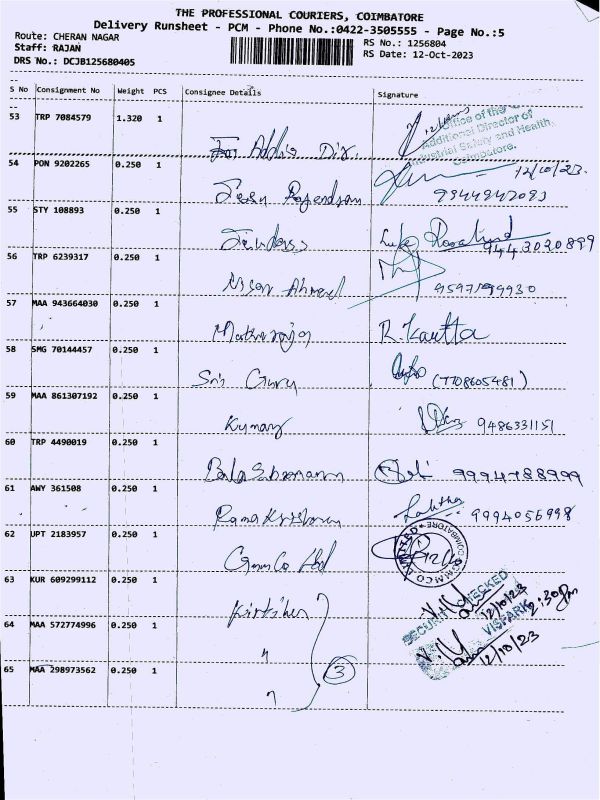 THE PROFESSIONAL COURIERS, COIMBATORE
Delivery Runsheet - PCM - Phone No.:0422-3505555 - Page No.:5
Route: CHERAN NAGAR RS No.: 1256804
Staff: RAJAN RS Date: 12-Oct-2023
DRS No.: DCJB125680405
S No Consignment No Weight PCS Consignee Details Signature
53 TRP 7084579 1.320 1
Office of the
Additional Director of
Industrial Safety and Health,
Coimbatore.
54 PON 9202265 0.250 1 12/10/23
Rajendran 9944942093
55 STY 108893 0.250 1
9443020899
56 TRP 6239317 0.250 1
Nisar Ahmed
57 MAA 943664030 0.250 1
R. Kavitta
58 SMG 70144457 0.250 1
Sri Guru (7708605481)
59 MAA 861307192 0.250 1
Kumar 9486331151
60 TRP 4490019 0.250 1
9994788999
61 AWY 361508 0.250 1 Lalitha
Rama Krishnan 9994056998
62 UPT 2183957 0.250 1
COIMBATORE
63 KUR 609299112 0.250 1
SECURITY CHECKED
12/10/23
64 MAA 572774996 0.250 1
VISPARK 2:30pm
"
12/10/23
65 MAA 298973562 0.250 1
3
"